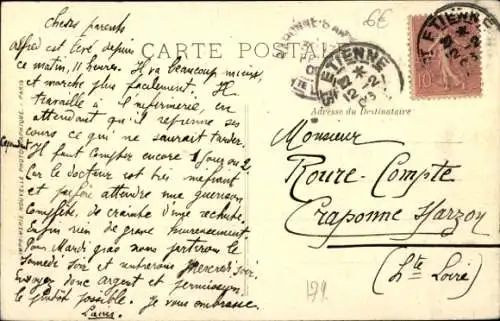 Chers parents
Alfred est levé depuis
ce matin, 11 heures. Il va beaucoup mieux,
et marche plus facilement. Il
travaille à l'infirmerie, en
attendant qu'il reprenne ses
cours ce qui ne saurait tarder.
Il faut compter encore 1 jour ou 2
Car le docteur est très méfiant
et attendre une guérison
complète, de crainte d'une rechute.
Enfin rien de grave heureusement.
Pour Mardi gras nous partirons le
Samedi soir et rentrerons Mercredi soir.
Envoyez donc argent et permission
le plutôt possible. Je vous embrasse.
Louis
CARTE POSTALE
6€
ST ETIENNE
10
ST ETIENNE
Adresse du Destinataire
Monsieur
Roure-Compte
Craponne s/Arzon
(Hte Loire)
179.
IMPRIMERIE NOUVELLE PHOTOGRAPHIQUE - PARIS